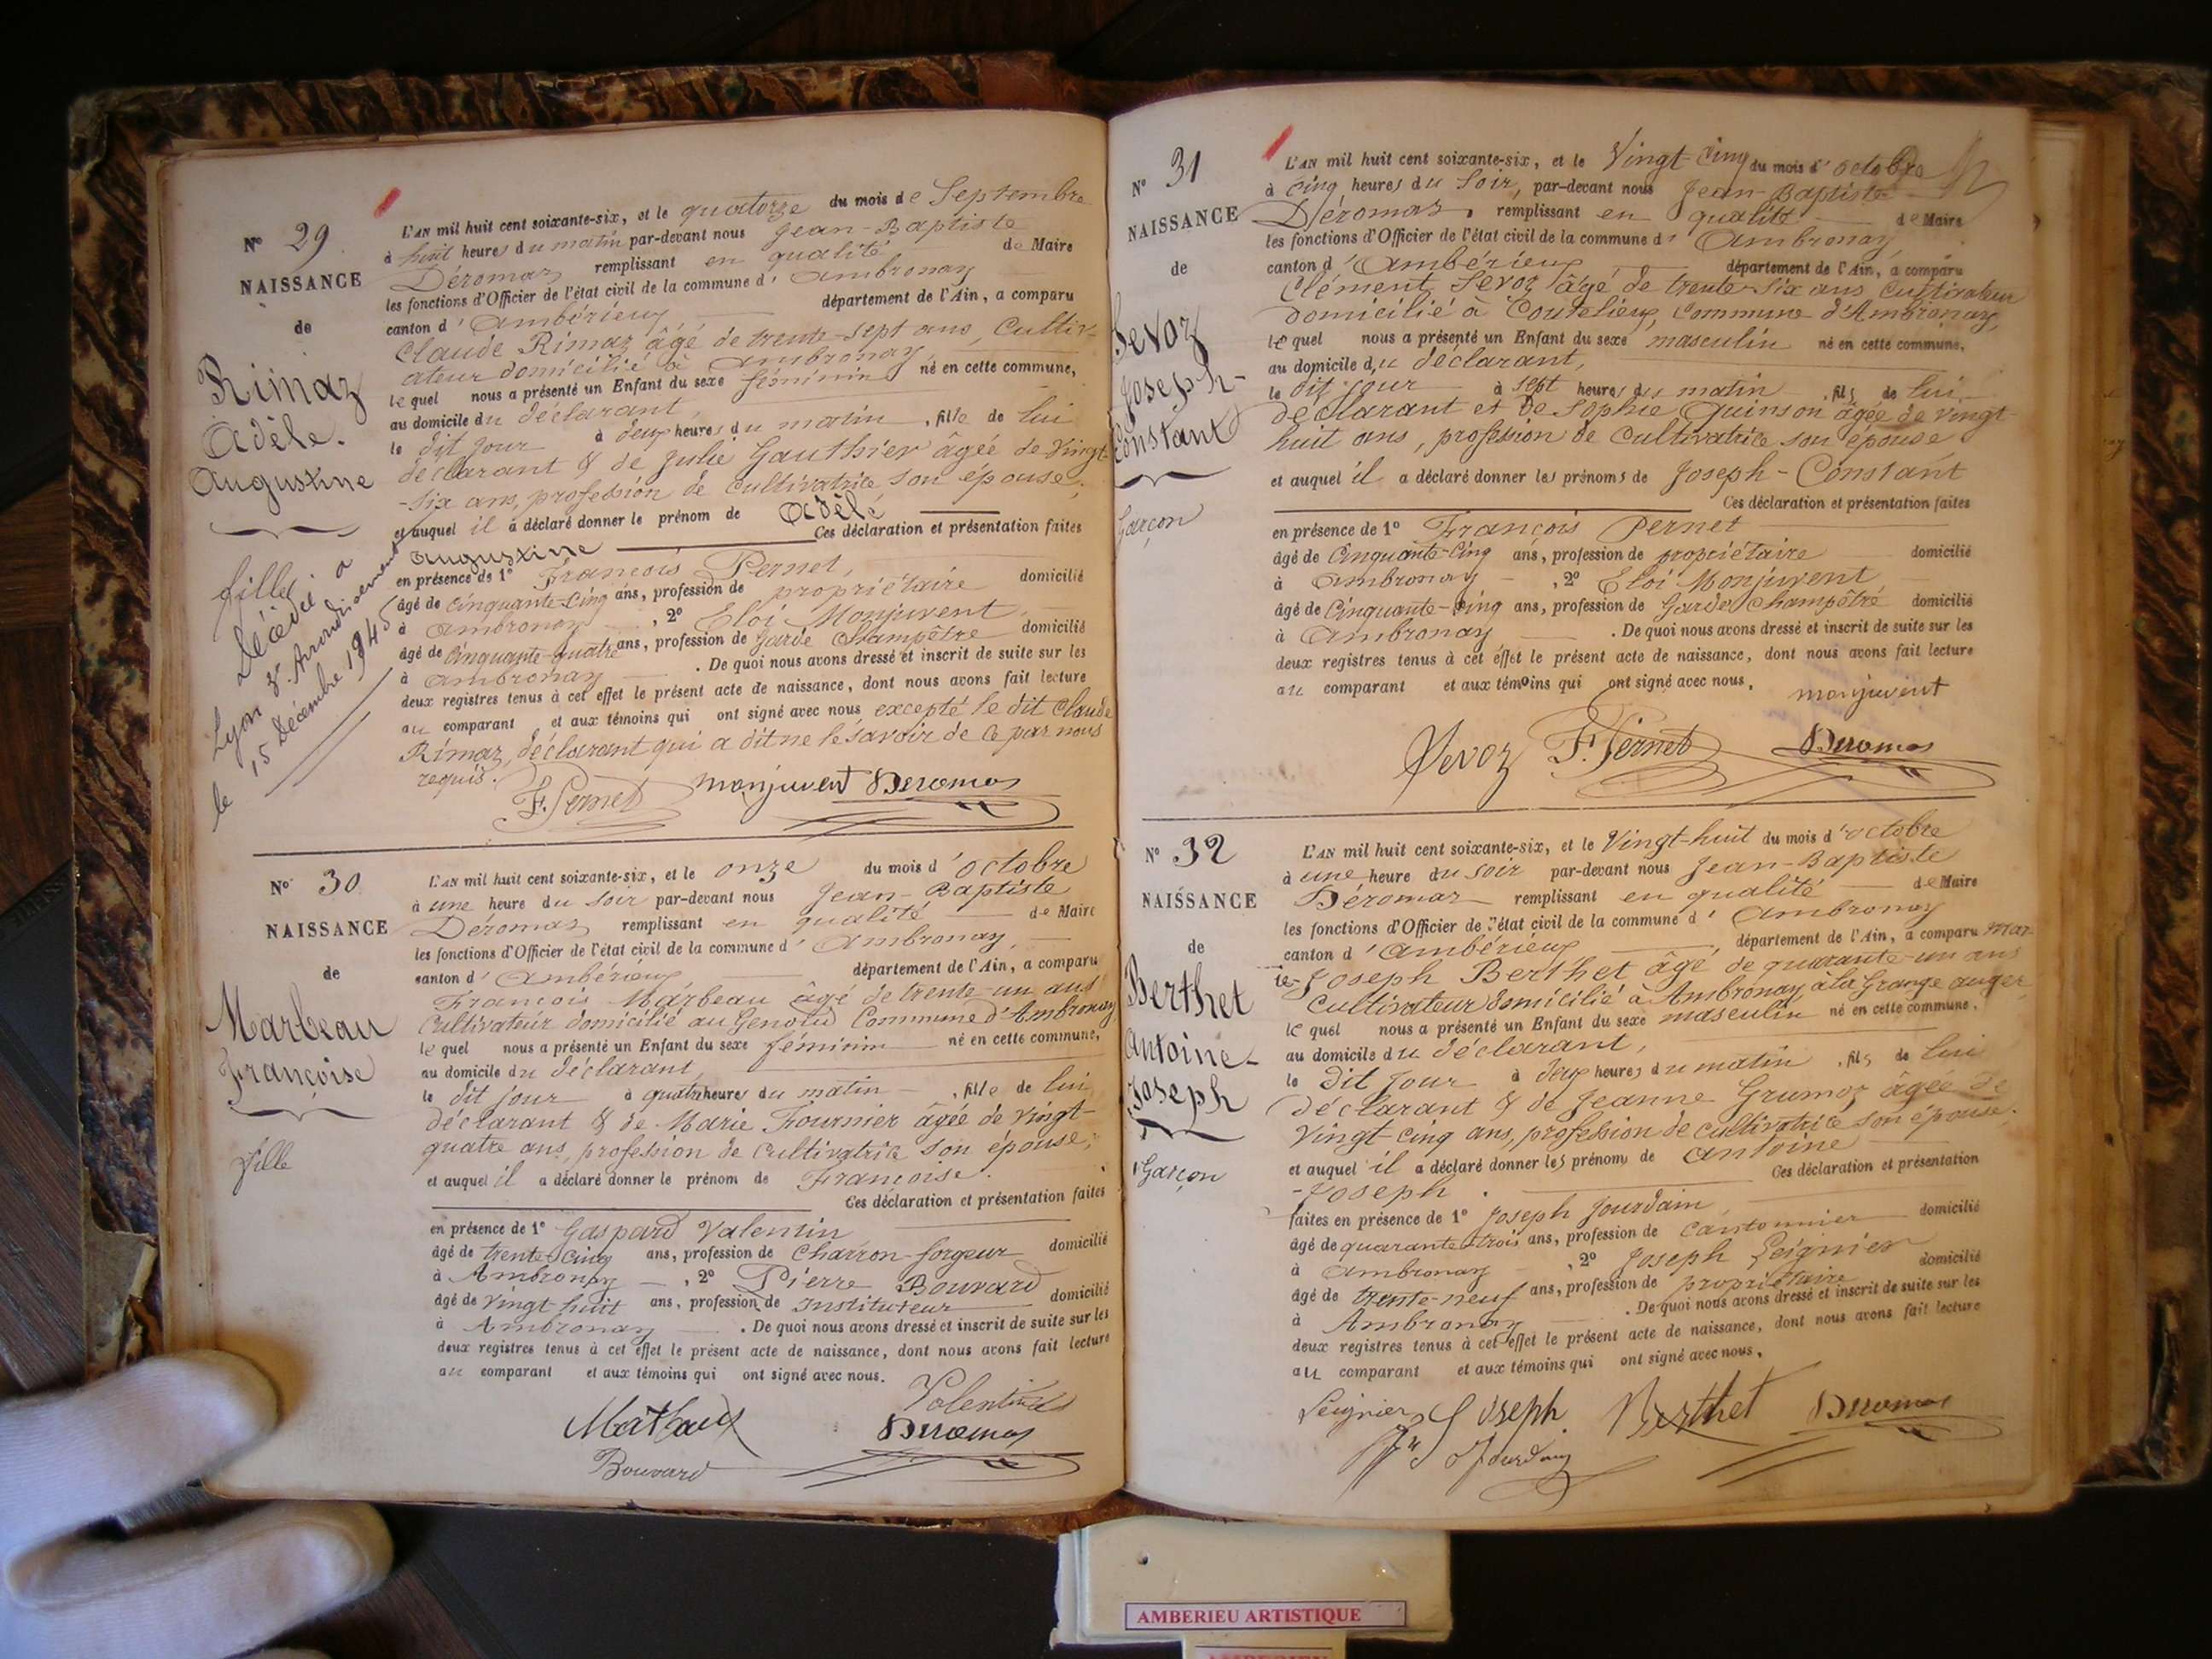 N° 29
NAISSANCE
de
Rimaz
Adèle.
Augustine
fille
Décédée à
Lyon 3e Arrondissement
le 15 Décembre 1945
L'AN mil huit cent soixante-six, et le quatorze du mois de Septembre
à huit heures du matin par-devant nous Jean-Baptiste
Déromas remplissant en qualité de Maire
les fonctions d'Officier de l'état civil de la commune d' Ambronay
canton d' Ambérieux département de l'Ain, a comparu
Claude Rimaz âgé de trente-sept ans, Cultiv-
ateur domicilié à Ambronay,
le quel nous a présenté un Enfant du sexe féminin né en cette commune,
au domicile du déclarant,
le dit jour à deux heures du matin, fille de lui
déclarant & de Julie Gauthier âgée de Vingt-
-six ans, profession de Cultivatrice son épouse;
et auquel il a déclaré donner le prénom de Adèle
Augustine Ces déclaration et présentation faites
en présence de 1° François Pernet,
âgé de Cinquante-Cinq ans, profession de propriétaire domicilié
à Ambronay, 2° Eloi Monjuvent
âgé de Cinquante-quatre ans, profession de Garde Champêtre domicilié
à Ambronay. De quoi nous avons dressé et inscrit de suite sur les
deux registres tenus à cet effet le présent acte de naissance, dont nous avons fait lecture
au comparant et aux témoins qui ont signé avec nous excepté le dit Claude
Rimaz, déclarant qui a dit ne le savoir de ce par nous
requis.
F. Pernet monjuvent Deromas
N° 30
NAISSANCE
de
Marbeau
Françoise
fille
L'AN mil huit cent soixante-six, et le onze du mois d' octobre
à une heure du soir par-devant nous Jean-Baptiste
Déromas remplissant en qualité de Maire
les fonctions d'Officier de l'état civil de la commune d' Ambronay,
canton d' Ambérieux département de l'Ain, a comparu
François Marbeau âgé de trente-un ans
Cultivateur domicilié au Genoud Commune d'Ambronay
le quel nous a présenté un Enfant du sexe féminin né en cette commune,
au domicile du déclarant,
le dit jour à quatre heures du matin, fille de lui
déclarant & de Marie Fournier âgée de vingt-
quatre ans, profession de Cultivatrice son épouse;
et auquel il a déclaré donner le prénom de Françoise.
Ces déclaration et présentation faites
en présence de 1° Gaspard Valentin
âgé de trente-cinq ans, profession de Charron-forgeur domicilié
à Ambronay, 2° Pierre Bouvard
âgé de Vingt-huit ans, profession de Instituteur domicilié
à Ambronay. De quoi nous avons dressé et inscrit de suite sur les
deux registres tenus à cet effet le présent acte de naissance, dont nous avons fait lecture
au comparant et aux témoins qui ont signé avec nous.
Valentin
Deromas
Bouvard
N° 31
NAISSANCE
de
Sevoz
Joseph-
Constant
Garçon
L'AN mil huit cent soixante-six, et le Vingt-Cinq du mois d' octobre
à cinq heures du soir, par-devant nous Jean-Baptiste
Déromas, remplissant en qualité de Maire
les fonctions d'Officier de l'état civil de la commune d' Ambronay
canton d' Ambérieux département de l'Ain, a comparu
Clément Sevoz âgé de trente-six ans Cultivateur
domicilié à Coutelieux, Commune d'Ambronay,
le quel nous a présenté un Enfant du sexe masculin né en cette commune,
au domicile du déclarant,
le dit jour à sept heures du matin, fils de lui
déclarant et de Sophie Quinson âgée de vingt-
huit ans, profession de Cultivatrice son épouse
et auquel il a déclaré donner les prénoms de Joseph-Constant
Ces déclaration et présentation faites
en présence de 1° François Pernet
âgé de Cinquante-Cinq ans, profession de propriétaire domicilié
à Ambronay, 2° Eloi Monjuvent
âgé de Cinquante-Cinq ans, profession de Garde Champêtre domicilié
à Ambronay. De quoi nous avons dressé et inscrit de suite sur les
deux registres tenus à cet effet le présent acte de naissance, dont nous avons fait lecture
au comparant et aux témoins qui ont signé avec nous,
monjuvent
Sevoz F. Pernet Deromas
N° 32
NAISSANCE
de
Berthet
Antoine-
Joseph
Garçon
L'AN mil huit cent soixante-six, et le Vingt-huit du mois d' octobre
à une heure du soir par-devant nous Jean-Baptiste
Déromas remplissant en qualité de Maire
les fonctions d'Officier de l'état civil de la commune d' Ambronay
canton d' Ambérieux, département de l'Ain, a comparu Mar-
ie-Joseph Berthet âgé de quarante-un ans
Cultivateur domicilié à Ambronay, à la Grange auger
le quel nous a présenté un Enfant du sexe masculin né en cette commune,
au domicile du déclarant,
le dit jour à deux heures du matin, fils de lui
déclarant & de Jeanne Grumoz âgée de
Vingt-cinq ans, profession de cultivatrice son épouse.
et auquel il a déclaré donner les prénoms de Antoine
-Joseph. Ces déclaration et présentation
faites en présence de 1° Joseph Jourdain
âgé de quarante-trois ans, profession de cantonnier domicilié
à Ambronay, 2° Joseph Leignier
âgé de trente-neuf ans, profession de propriétaire domicilié
à Ambronay. De quoi nous avons dressé et inscrit de suite sur les
deux registres tenus à cet effet le présent acte de naissance, dont nous avons fait lecture
au comparant et aux témoins qui ont signé avec nous,
Leignier Joseph Berthet Deromas
AMBERIEU ARTISTIQUE